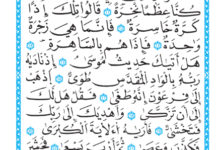 كُنَّا عِظَٰمًا نَّخِرَةً ۝ قَالُوا۟ تِلْكَ إِذًا
كَرَّةٌ خَاسِرَةٌ ۝ فَإِنَّمَا هِىَ زَجْرَةٌ
وَٰحِدَةٌ ۝ فَإِذَا هُم بِٱلسَّاهِرَةِ ۝
هَلْ أَتَىٰكَ حَدِيثُ مُوسَىٰٓ ۝ إِذْ نَادَىٰهُ
رَبُّهُۥ بِٱلْوَادِ ٱلْمُقَدَّسِ طُوًى ۝ ٱذْهَبْ
إِلَىٰ فِرْعَوْنَ إِنَّهُۥ طَغَىٰ ۝ فَقُلْ هَل لَّكَ
إِلَىٰٓ أَن تَزَكَّىٰ ۝ وَأَهْدِيَكَ إِلَىٰ رَبِّكَ
فَتَخْشَىٰ ۝ فَأَرَىٰهُ ٱلْءَايَةَ ٱلْكُبْرَىٰ